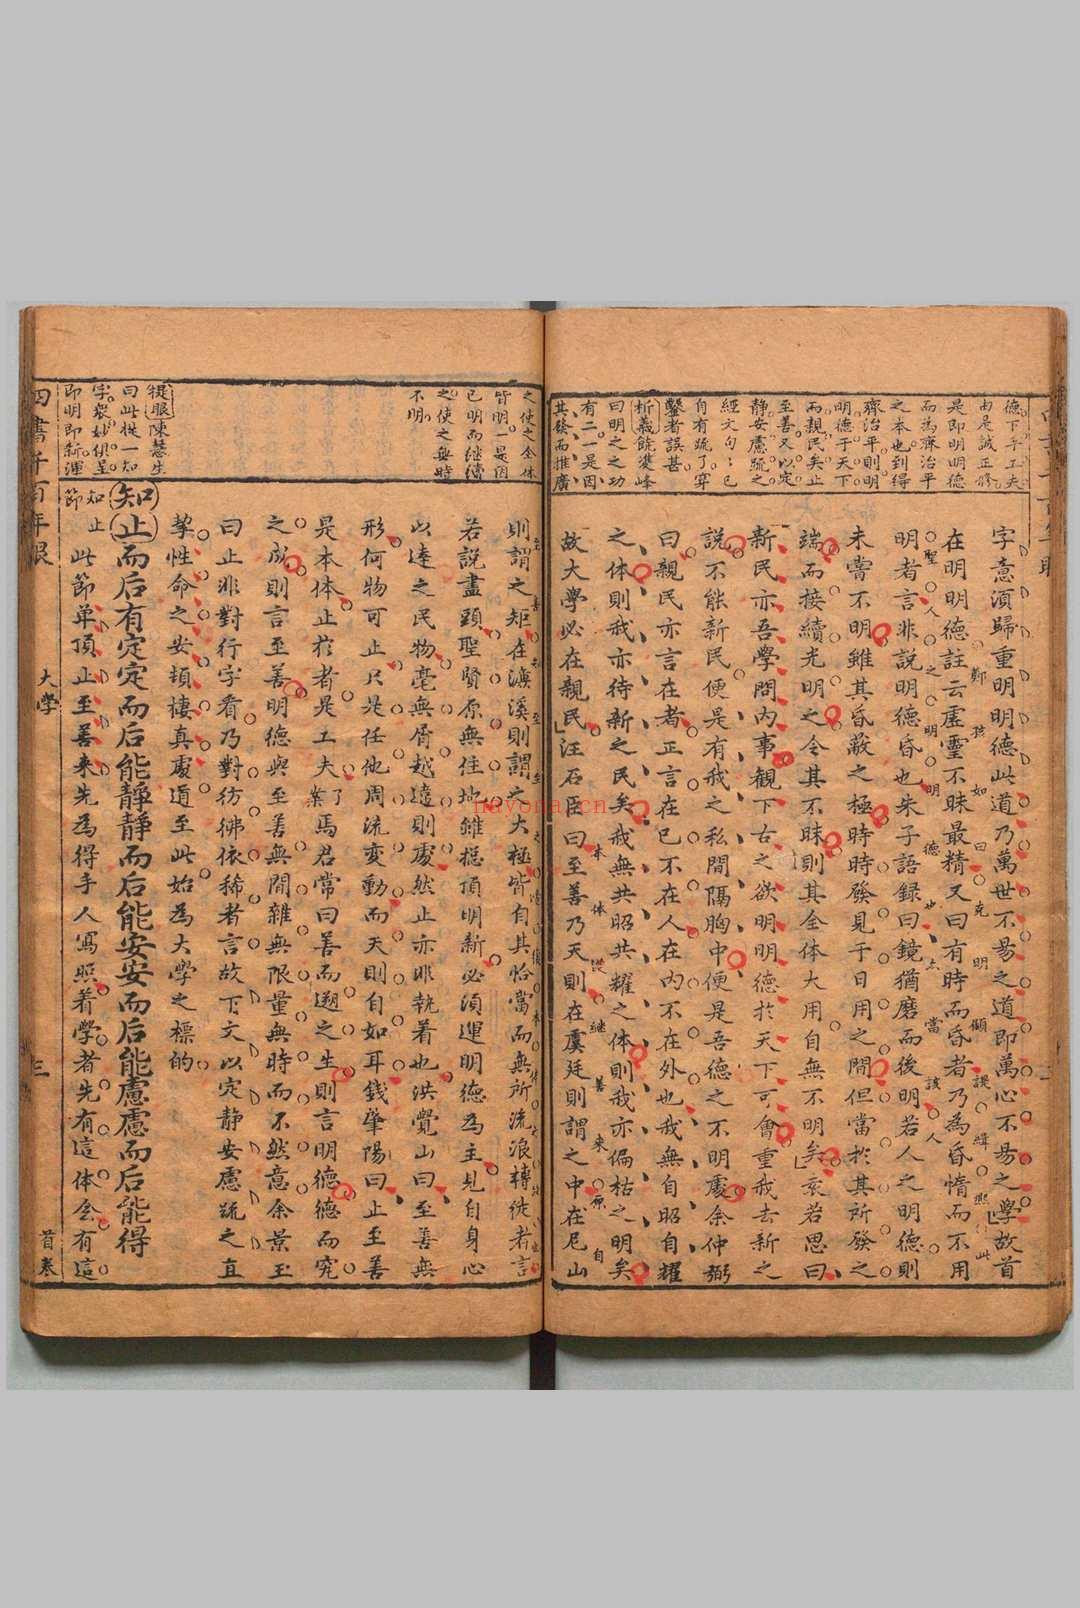 德下手工夫
由是誠正修
是即明明德
而為齊治平
之本也到得
齊治平則明
明德于天下
而親民矣止
至善又以定
靜安慮疏之
經文句句已
自有疏了穿
鑿者誤甚
析義饒雙峰
曰明之之功
有二一是因
其發而推廣
字意須歸重明明德此道乃萬世不易之道即萬心不易之學故首
在明明德註云虛靈不昧最精又曰有時而昏者乃為昏惰而不用
明者言非說明德昏也朱子語錄曰鏡猶磨而後明若人之明德則
未嘗不明雖其昏蔽之極時時發見于日用之間但當於其所發之
端而接續光明之令其不昧則其全體大用自無不明矣袁若思曰
新民亦吾學問內事觀下古之欲明明德於天下可會重我去新之
說不能新民便是有我之私間隔胸中便是吾德之不明處余仲弼
曰親民亦言在者正言在已不在人在內不在外也我無自昭自耀
之体則我亦待新之民矣我無共昭共耀之体則我亦偏枯之明矣
故大學必在親民汪石臣曰至善乃天則在虞廷則謂之中在尼山
之使之全体
皆明一是因
已明而继續
之使之無時
不明
提眼陳慧生
曰此提一知
字衆妙俱呈
即明即新渾
則謂之矩在濂溪則謂之太極皆自其恰當而無所流浪轉徙者言
若說盡頭聖賢原無住地雖極頂明新必須運明德為主見自身心
以達之民物毫無屑越遠則處然止亦非執着也洪覺山曰至善無
形何物可止只是任他周流変動而天則自如耳錢肇陽曰止至善
是本体止於者是工夫了案馬君常曰善而遡之生則言明德德而究
之成則言至善明德與至善無間雜無限量無時而不然意余景玉
曰止非對行字看乃對彷彿依稀者言故下文以定靜安慮疏之直
挈性命之安頓棲真處道至此始為大學之標的
知止而后有定定而后能靜靜而后能安安而后能慮慮而后能得
知止節
此節单頂止至善来先為得手人寫照着學者先有這体会有這
四書千百年眼
大學
三
首卷